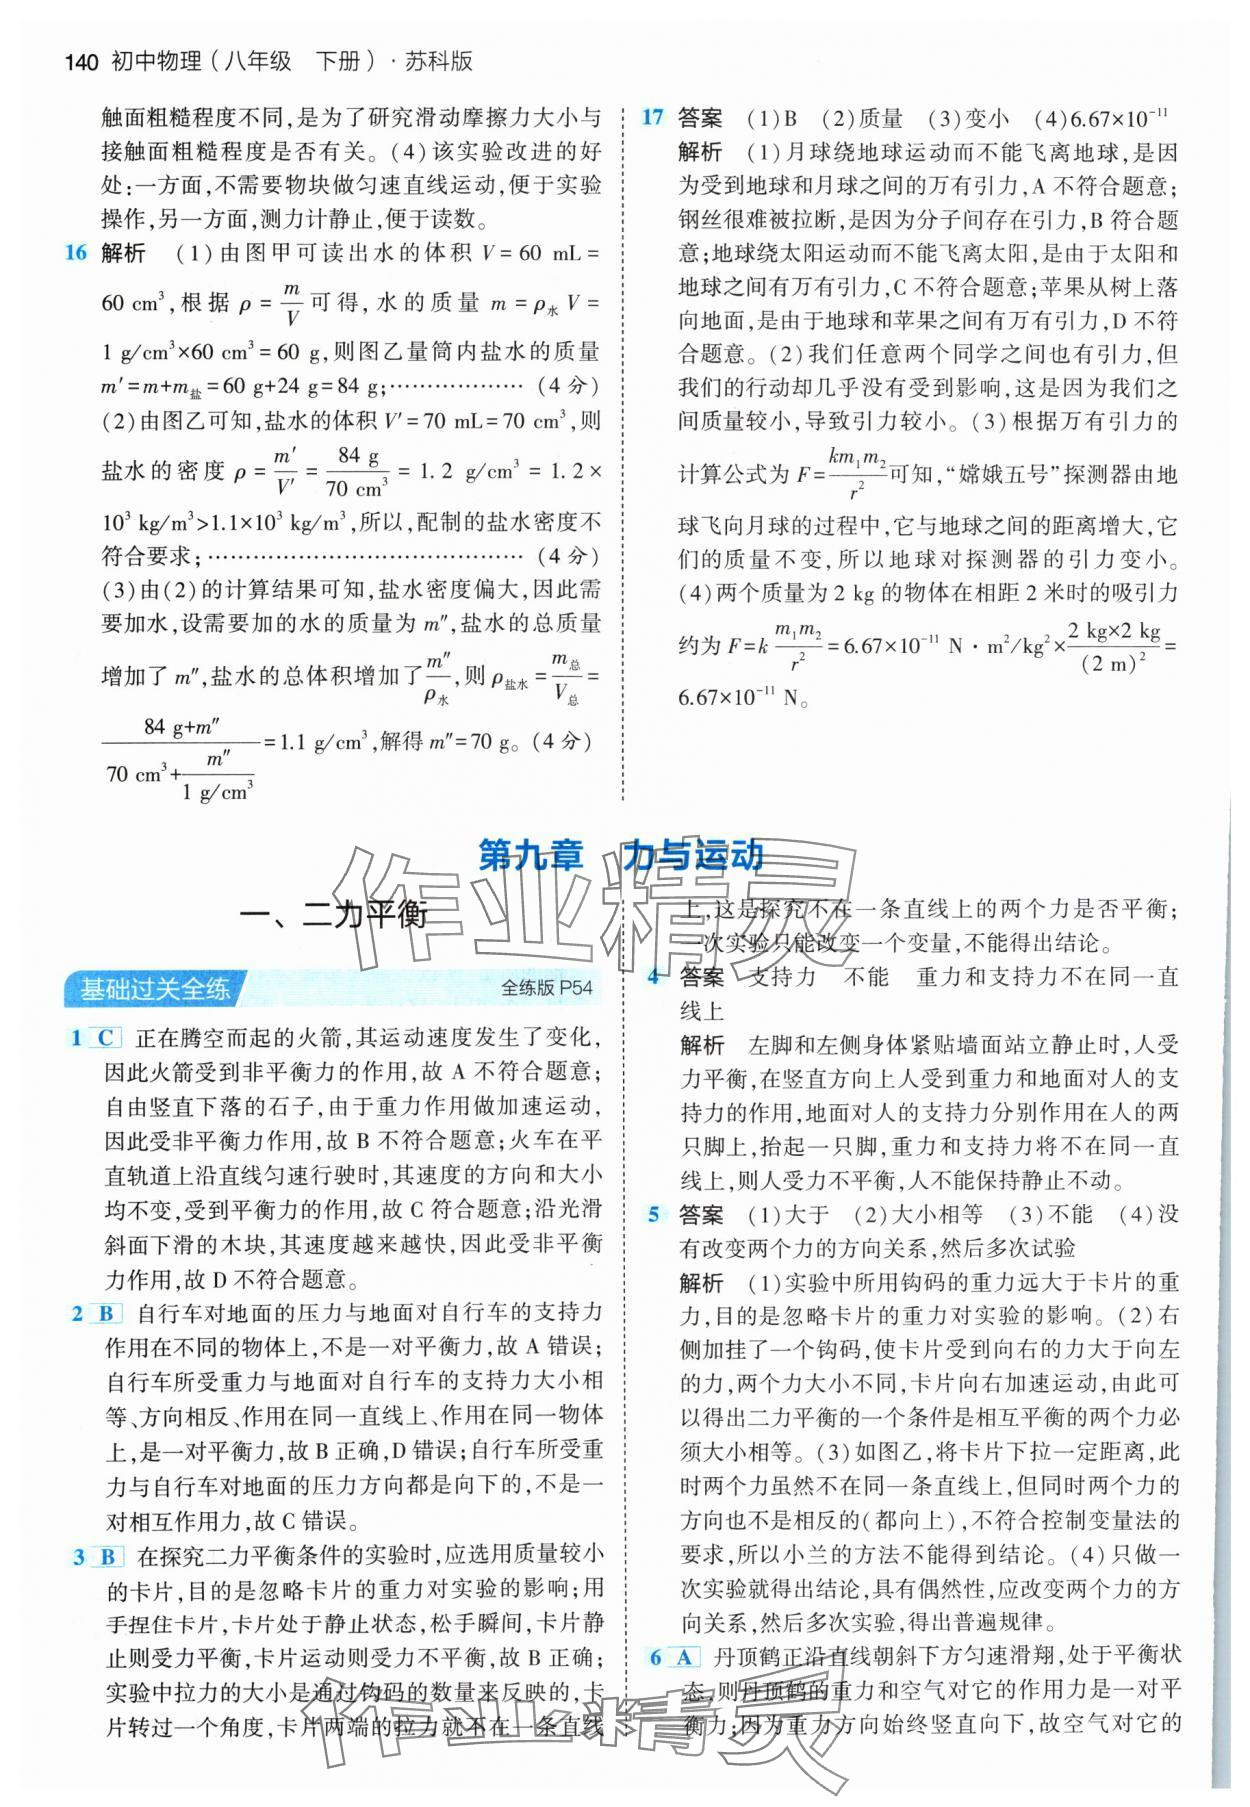 140 初中物理(八年级 下册)·苏科版
触面粗糙程度不同,是为了研究滑动摩擦力大小与
接触面粗糙程度是否有关。(4)该实验改进的好
处:一方面,不需要物块做匀速直线运动,便于实验
操作,另一方面,测力计静止,便于读数。
16 解析 (1)由图甲可读出水的体积 V=60 mL=
60 cm³,根据 ρ=m/V 可得,水的质量 m=ρ水V=
1 g/cm³×60 cm³=60 g,则图乙量筒内盐水的质量
m′=m+m盐=60 g+24 g=84 g;………………(4分)
(2)由图乙可知,盐水的体积 V′=70 mL=70 cm³,则
盐水的密度 ρ=m′/V′=84 g/70 cm³=1.2 g/cm³=1.2×
10³ kg/m³>1.1×10³ kg/m³,所以,配制的盐水密度不
符合要求;……………………………………(4分)
(3)由(2)的计算结果可知,盐水密度偏大,因此需
要加水,设需要加的水的质量为 m″,盐水的总质量
增加了 m″,盐水的总体积增加了 m″/ρ水,则 ρ盐水=m总/V总=
(84 g+m″)/(70 cm³+m″/(1 g/cm³))=1.1 g/cm³,解得 m″=70 g。(4分)
17 答案 (1)B (2)质量 (3)变小 (4)6.67×10⁻¹¹
解析 (1)月球绕地球运动而不能飞离地球,是因
为受到地球和月球之间的万有引力,A 不符合题意;
钢丝很难被拉断,是因为分子间存在引力,B 符合题
意;地球绕太阳运动而不能飞离太阳,是由于太阳和
地球之间有万有引力,C 不符合题意;苹果从树上落
向地面,是由于地球和苹果之间有万有引力,D 不符
合题意。(2)我们任意两个同学之间也有引力,但
我们的行动却几乎没有受到影响,这是因为我们之
间质量较小,导致引力较小。(3)根据万有引力的
计算公式为 F=km₁m₂/r² 可知,“嫦娥五号”探测器由地
球飞向月球的过程中,它与地球之间的距离增大,它
们的质量不变,所以地球对探测器的引力变小。
(4)两个质量为 2 kg 的物体在相距 2 米时的吸引力
约为 F=k m₁m₂/r²=6.67×10⁻¹¹ N·m²/kg²×(2 kg×2 kg)/(2 m)²=
6.67×10⁻¹¹ N。
第九章 力与运动
一、二力平衡
基础过关全练 全练版 P54
1 C 正在腾空而起的火箭,其运动速度发生了变化,
因此火箭受到非平衡力的作用,故 A 不符合题意;
自由竖直下落的石子,由于重力作用做加速运动,
因此受非平衡力作用,故 B 不符合题意;火车在平
直轨道上沿直线匀速行驶时,其速度的方向和大小
均不变,受到平衡力的作用,故 C 符合题意;沿光滑
斜面下滑的木块,其速度越来越快,因此受非平衡
力作用,故 D 不符合题意。
2 B 自行车对地面的压力与地面对自行车的支持力
作用在不同的物体上,不是一对平衡力,故 A 错误;
自行车所受重力与地面对自行车的支持力大小相
等、方向相反、作用在同一直线上、作用在同一物体
上,是一对平衡力,故 B 正确,D 错误;自行车所受重
力与自行车对地面的压力方向都是向下的,不是一
对相互作用力,故 C 错误。
3 B 在探究二力平衡条件的实验时,应选用质量较小
的卡片,目的是忽略卡片的重力对实验的影响;用
手捏住卡片,卡片处于静止状态,松手瞬间,卡片静
止则受力平衡,卡片运动则受力不平衡,故 B 正确;
实验中拉力的大小是通过钩码的数量来反映的,卡
片转过一个角度,卡片两端的拉力就不在一条直线
上,这是探究不在一条直线上的两个力是否平衡;
一次实验只能改变一个变量,不能得出结论。
4 答案 支持力 不能 重力和支持力不在同一直
线上
解析 左脚和左侧身体紧贴墙面站立静止时,人受
力平衡,在竖直方向上人受到重力和地面对人的支
持力的作用,地面对人的支持力分别作用在人的两
只脚上,抬起一只脚,重力和支持力将不在同一直
线上,则人受力不平衡,人不能保持静止不动。
5 答案 (1)大于 (2)大小相等 (3)不能 (4)没
有改变两个力的方向关系,然后多次试验
解析 (1)实验中所用钩码的重力远大于卡片的重
力,目的是忽略卡片的重力对实验的影响。(2)右
侧加挂了一个钩码,使卡片受到向右的力大于向左
的力,两个力大小不同,卡片向右加速运动,由此可
以得出二力平衡的一个条件是相互平衡的两个力必
须大小相等。(3)如图乙,将卡片下拉一定距离,此
时两个力虽然不在同一条直线上,但同时两个力的
方向也不是相反的(都向上),不符合控制变量法的
要求,所以小兰的方法不能得到结论。(4)只做一
次实验就得出结论,具有偶然性,应改变两个力的方
向关系,然后多次实验,得出普遍规律。
6 A 丹顶鹤正沿直线朝斜下方匀速滑翔,处于平衡状
态,则丹顶鹤的重力和空气对它的作用力是一对平
衡力;因为重力方向始终竖直向下,故空气对它的
作业精灵
作业精灵